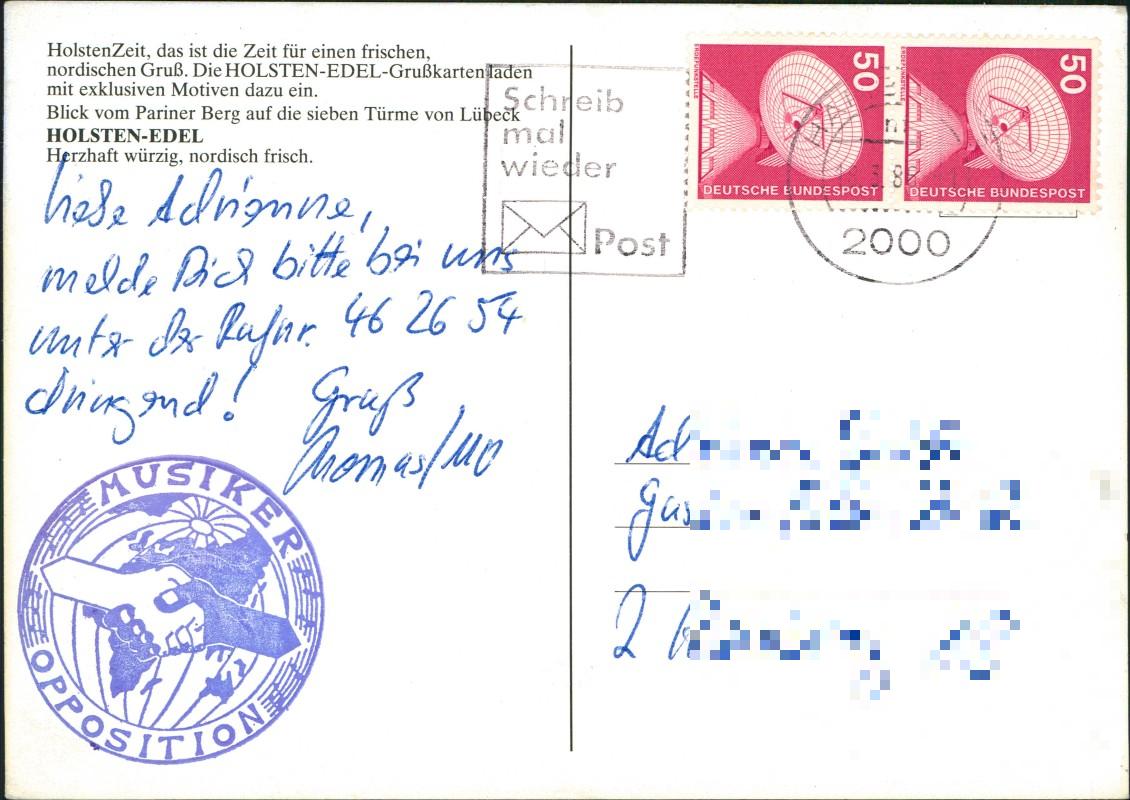 HolstenZeit, das ist die Zeit für einen frischen,
nordischen Gruß. Die HOLSTEN-EDEL-Grußkarten laden
mit exklusiven Motiven dazu ein.
Blick vom Pariner Berg auf die sieben Türme von Lübeck
HOLSTEN-EDEL
Herzhaft würzig, nordisch frisch.
liebe Adrienne,
melde Dich bitte bei uns
unter der Rufnr. 46 26 54
dringend!
Gruß
Thomas/MO
MUSIKER
OPPOSITION
Schreib
mal
wieder
Post
50
ERDEFUNKSTELLE
DEUTSCHE BUNDESPOST
50
ERDEFUNKSTELLE
DEUTSCHE BUNDESPOST
2000
Ad
2